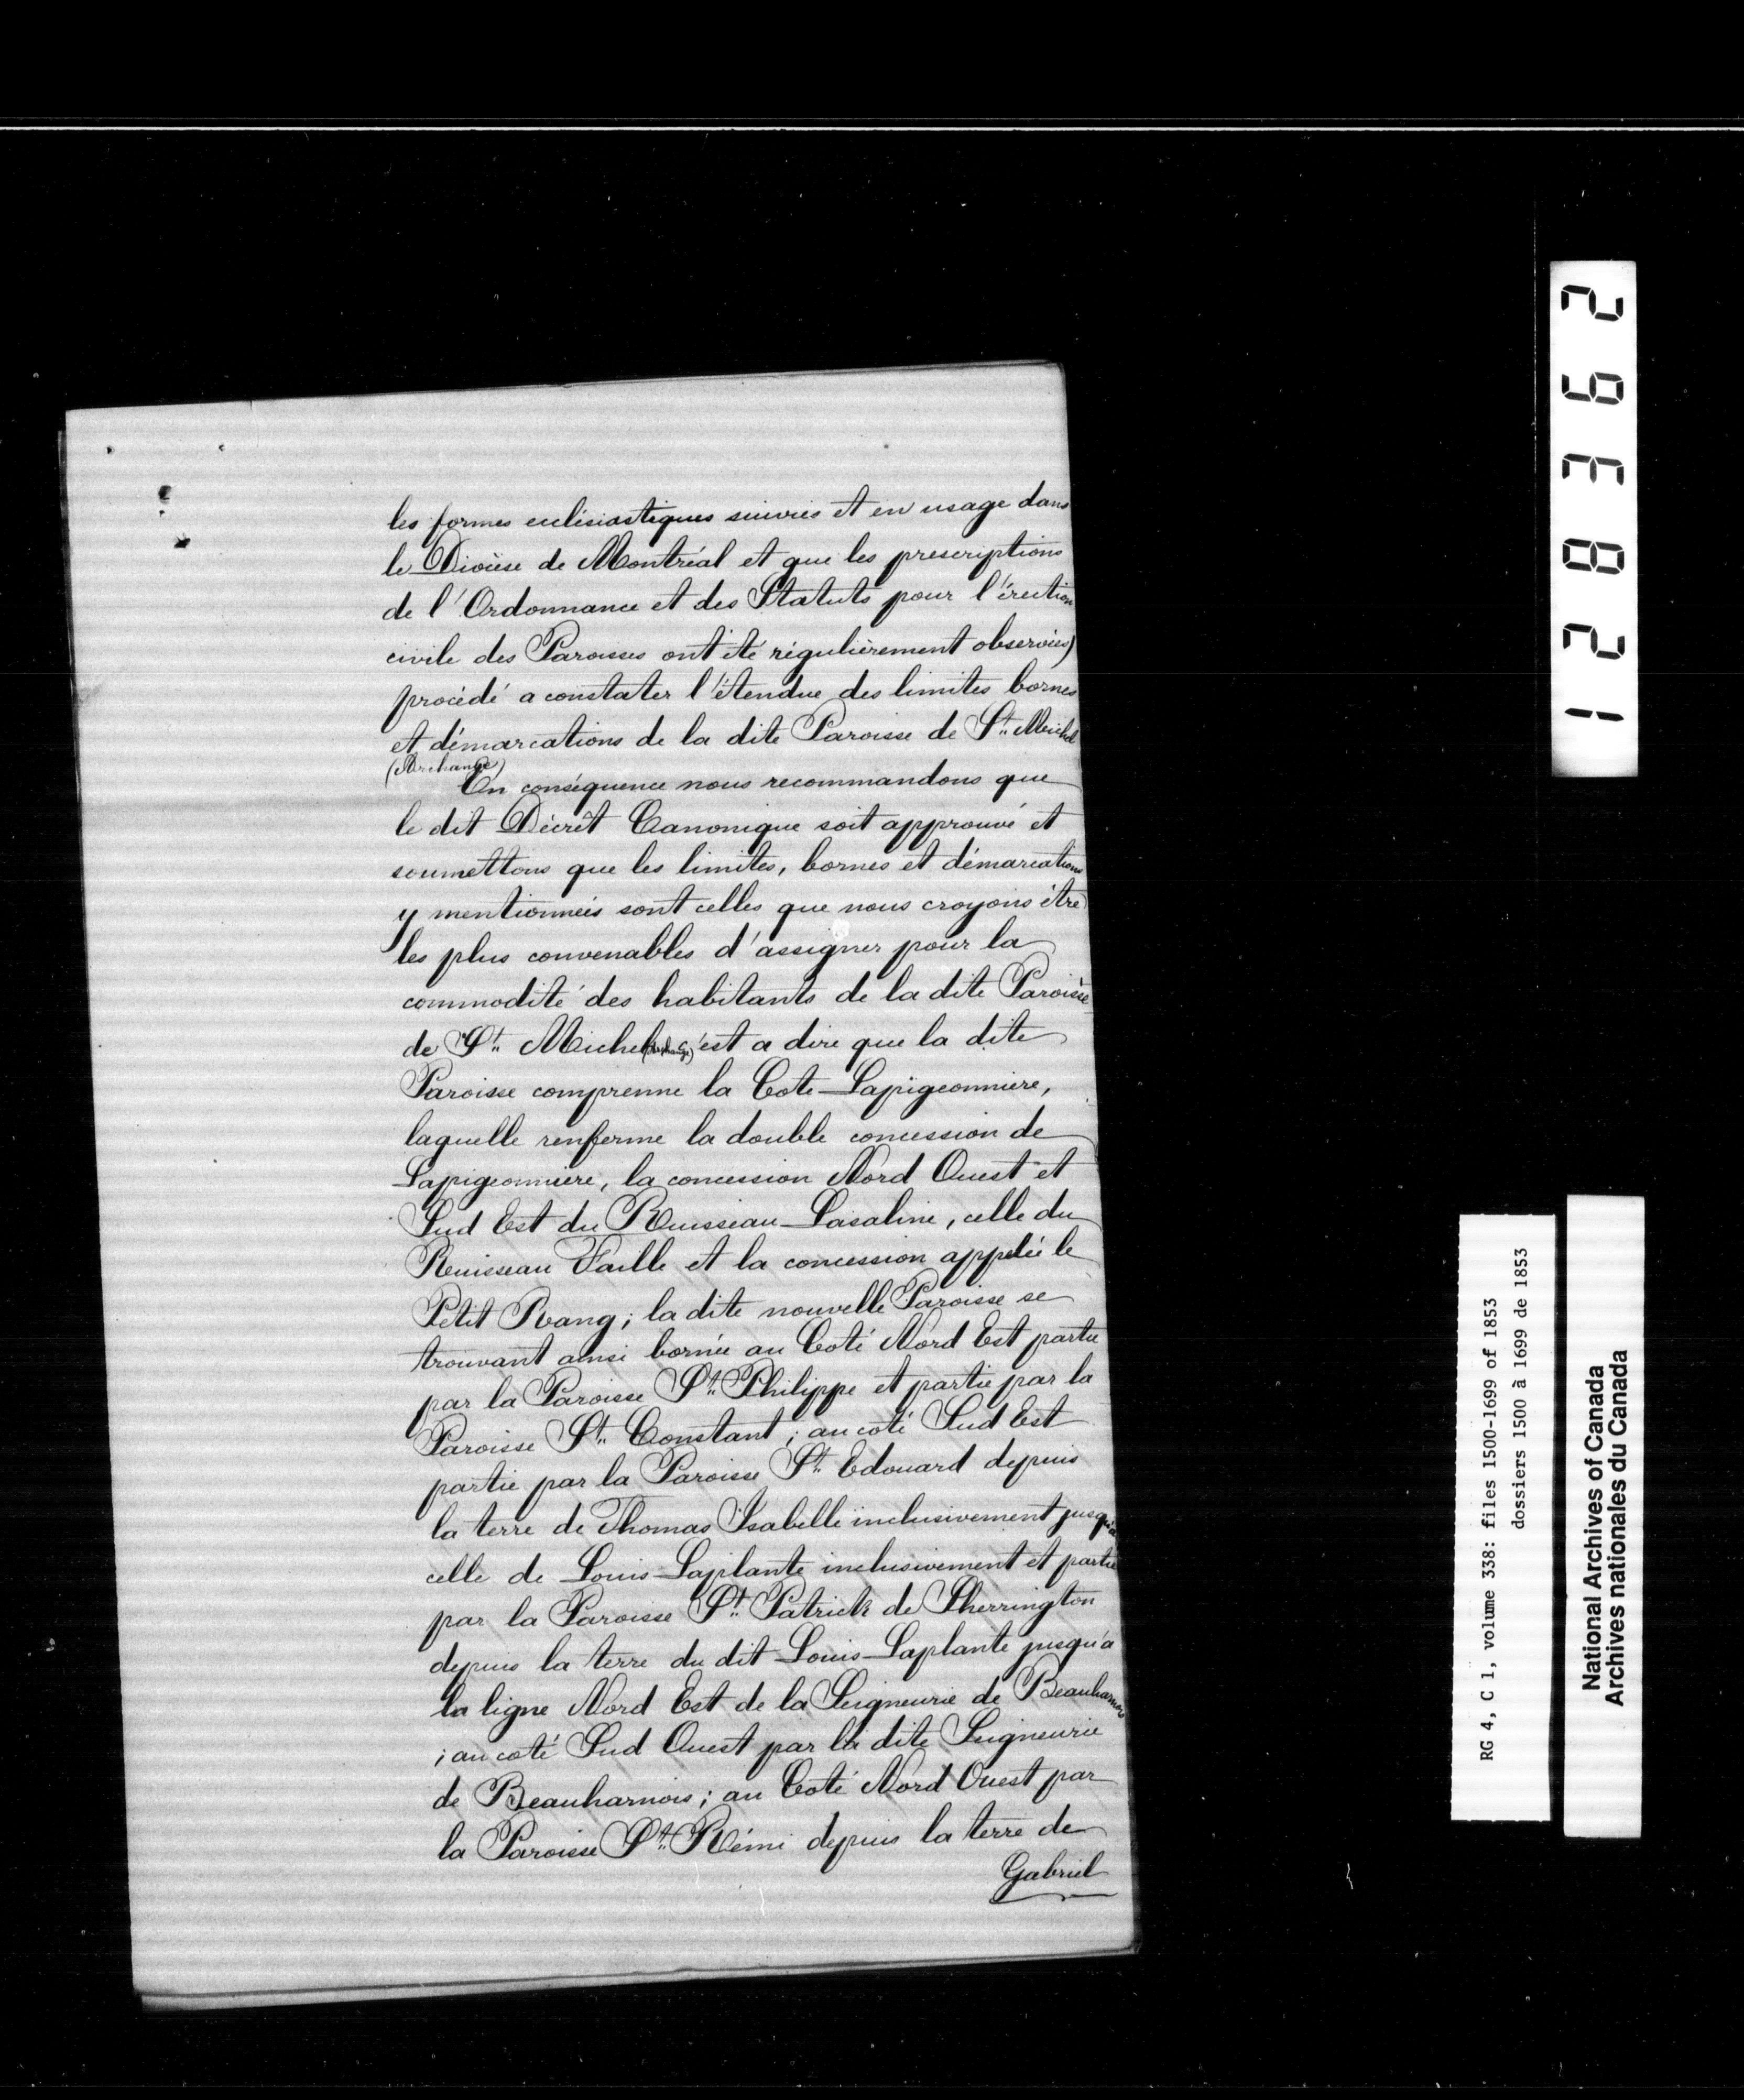 les formes eclésiastiques suivies et en usage dans
le Diocèse de Montréal et que les prescriptions
de l'Ordonnance et des Statuts pour l'érection
civile des Paroisses ont été régulièrement observées)
procédé a constater l'étendue des limites bornes
et démarcations de la dite Paroisse de St. Michel
(Archange)
En conséquence nous recommandons que
le dit Décrêt Canonique soit approuvé et
soumettons que les limites, bornes et démarcations
y mentionneés sont celles que nous croyons être
les plus convenables d'assigner pour la
commodité des habitants de la dite Paroisse
de St. Michel (Archange) c'est a dire que la dite
Paroisse comprenne la Cote Lapigeonnière,
laquelle renferme la double concession de
Lapigeonnière, la concession Nord Ouest et
Sud Est du Ruisseau Lasaline, celle du
Ruisseau Faille et la concession appelée le
Petit Rang; la dite nouvelle Paroisse se
trouvant ainsi bornée au Coté Nord Est partie
par la Paroisse St. Philippe et partie par la
Paroisse St. Constant; au coté Sud Est
partie par la Paroisse St. Edouard depuis
la terre de Thomas Isabelle inclusivement jusqu'a
celle de Louis Laplante inclusivement et partie
par la Paroisse St. Patrick de Sherrington
depuis la terre du dit Louis Laplante jusqu'a
la ligne Nord Est de la Seigneurie de Beauharnois
; au coté Sud Ouest par la dite Seigneurie
de Beauharnois; au Coté Nord Ouest par
la Paroisse St. Rémi depuis la terre de
Gabriel
128362
RG 4, C 1, volume 338: files 1500-1699 of 1853
dossiers 1500 à 1699 de 1853
National Archives of Canada
Archives nationales du Canada